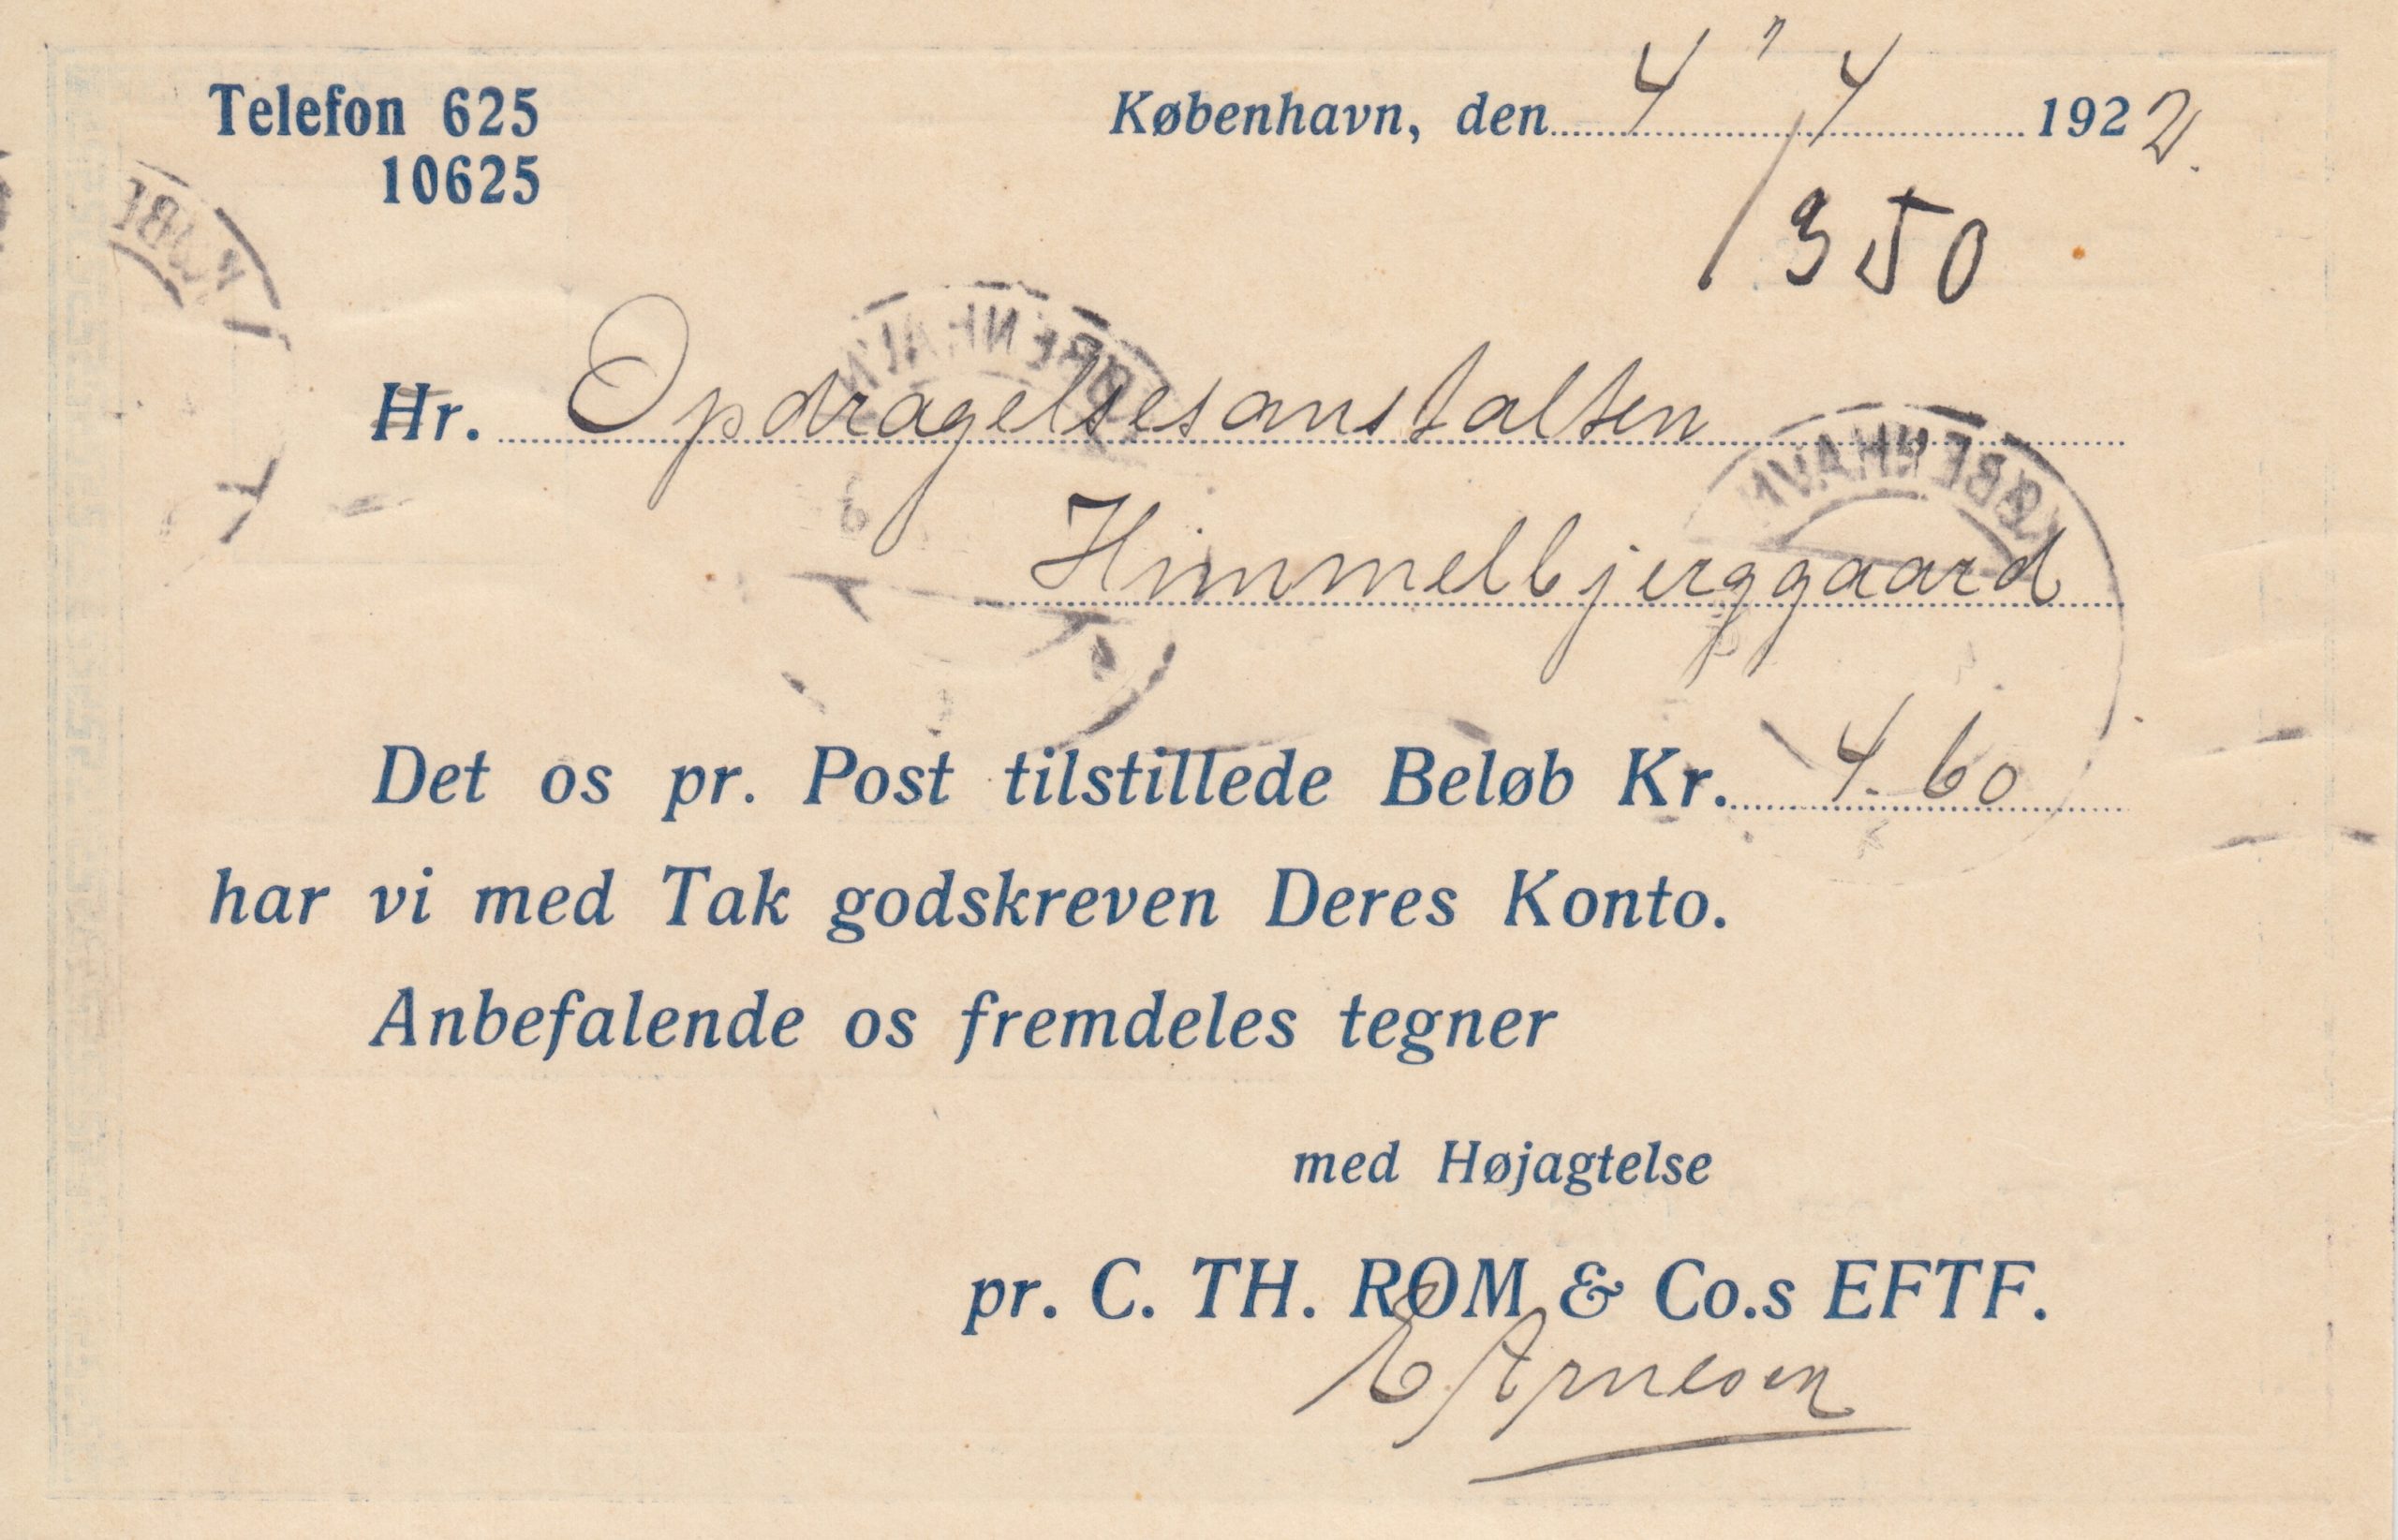 Telefon 625
10625
København, den 4/4 1922.
350
Hr. Opdragelsesanstalten
Himmelbjerggaard
Det os pr. Post tilstillede Beløb Kr. 4.60
har vi med Tak godskreven Deres Konto.
Anbefalende os fremdeles tegner
med Højagtelse
pr. C. TH. ROM & Co.s EFTF.
E Arnesen